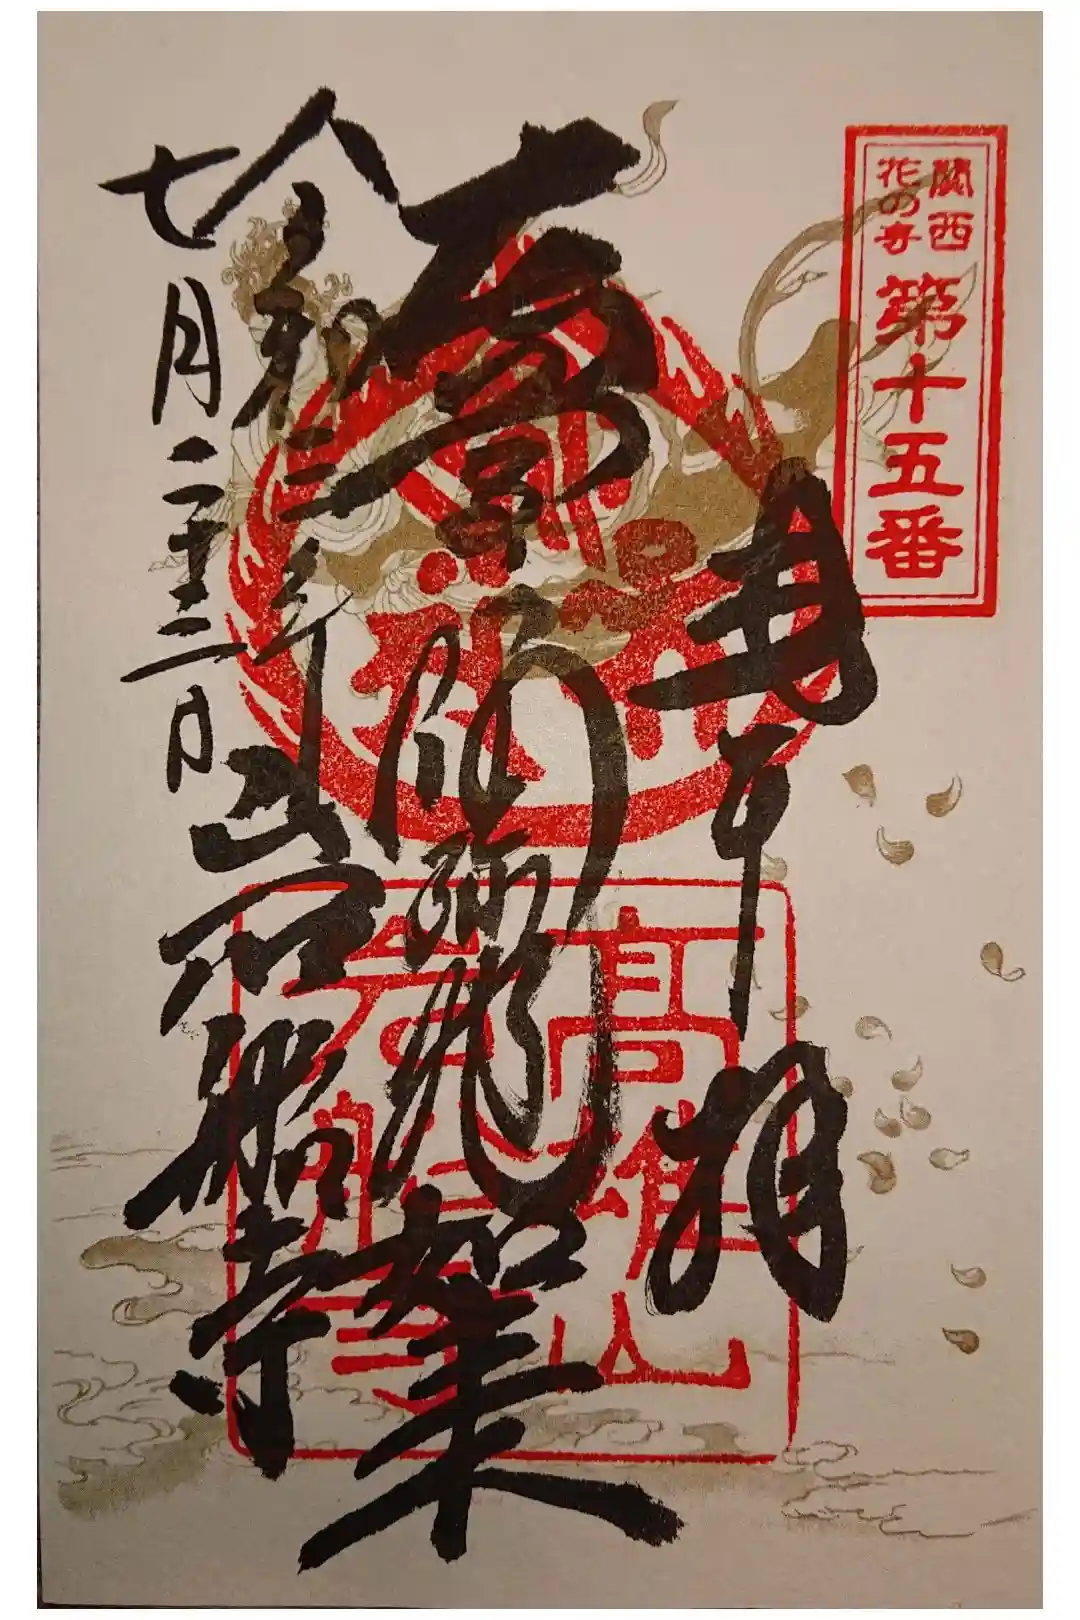 關西
花の寺
第十五番
奉拝
阿弥陀如来
令和三年
七月二十三日
岩船寺
高雄山
岩船寺